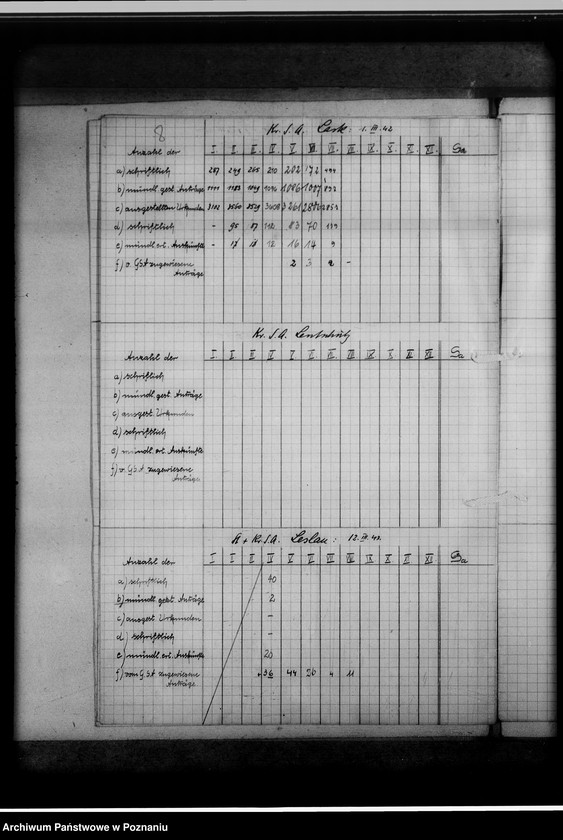 8
Kr. S. A. Lask: 1. III. 42
Anzahl der I II III IV V VI VII VIII IX X XI XII Sa
a) schriftlich 287 249 265 210 202 172
b) mündl. gest. Anträge 1086 1097
c) ausgestellten Urkunden 3102 3560 3529 3261
d) schriftlich - 95 87 112 83 70 139
e) mündl. ert. Auskünfte - 17 18 12 16 14 9
f) v. GSA zugewiesene 2 3 2 -
Anträge
Kr. S. A. Lentschütz
Anzahl der I II III IV V VI VII VIII IX X XI XII Sa
a) schriftlich
b) mündl. gest. Anträge
c) ausgest. Urkunden
d) schriftlich
e) mündl. ert. Auskünfte
f) v. GSA zugewiesene
Anträge
A + Kr. S. A. Leslau:
Anzahl der I II III IV V VI VII VIII IX X XI XII Sa
a) schriftlich 40
b) mündl. gest. Anträge 2
c) ausgest. Urkunden -
d) schriftlich -
e) mündl. ert. Auskünfte 20
f) vom G.S.A zugewiesene 56 44 26 4 11
Anträge
Archiwum Państwowe w Poznaniu